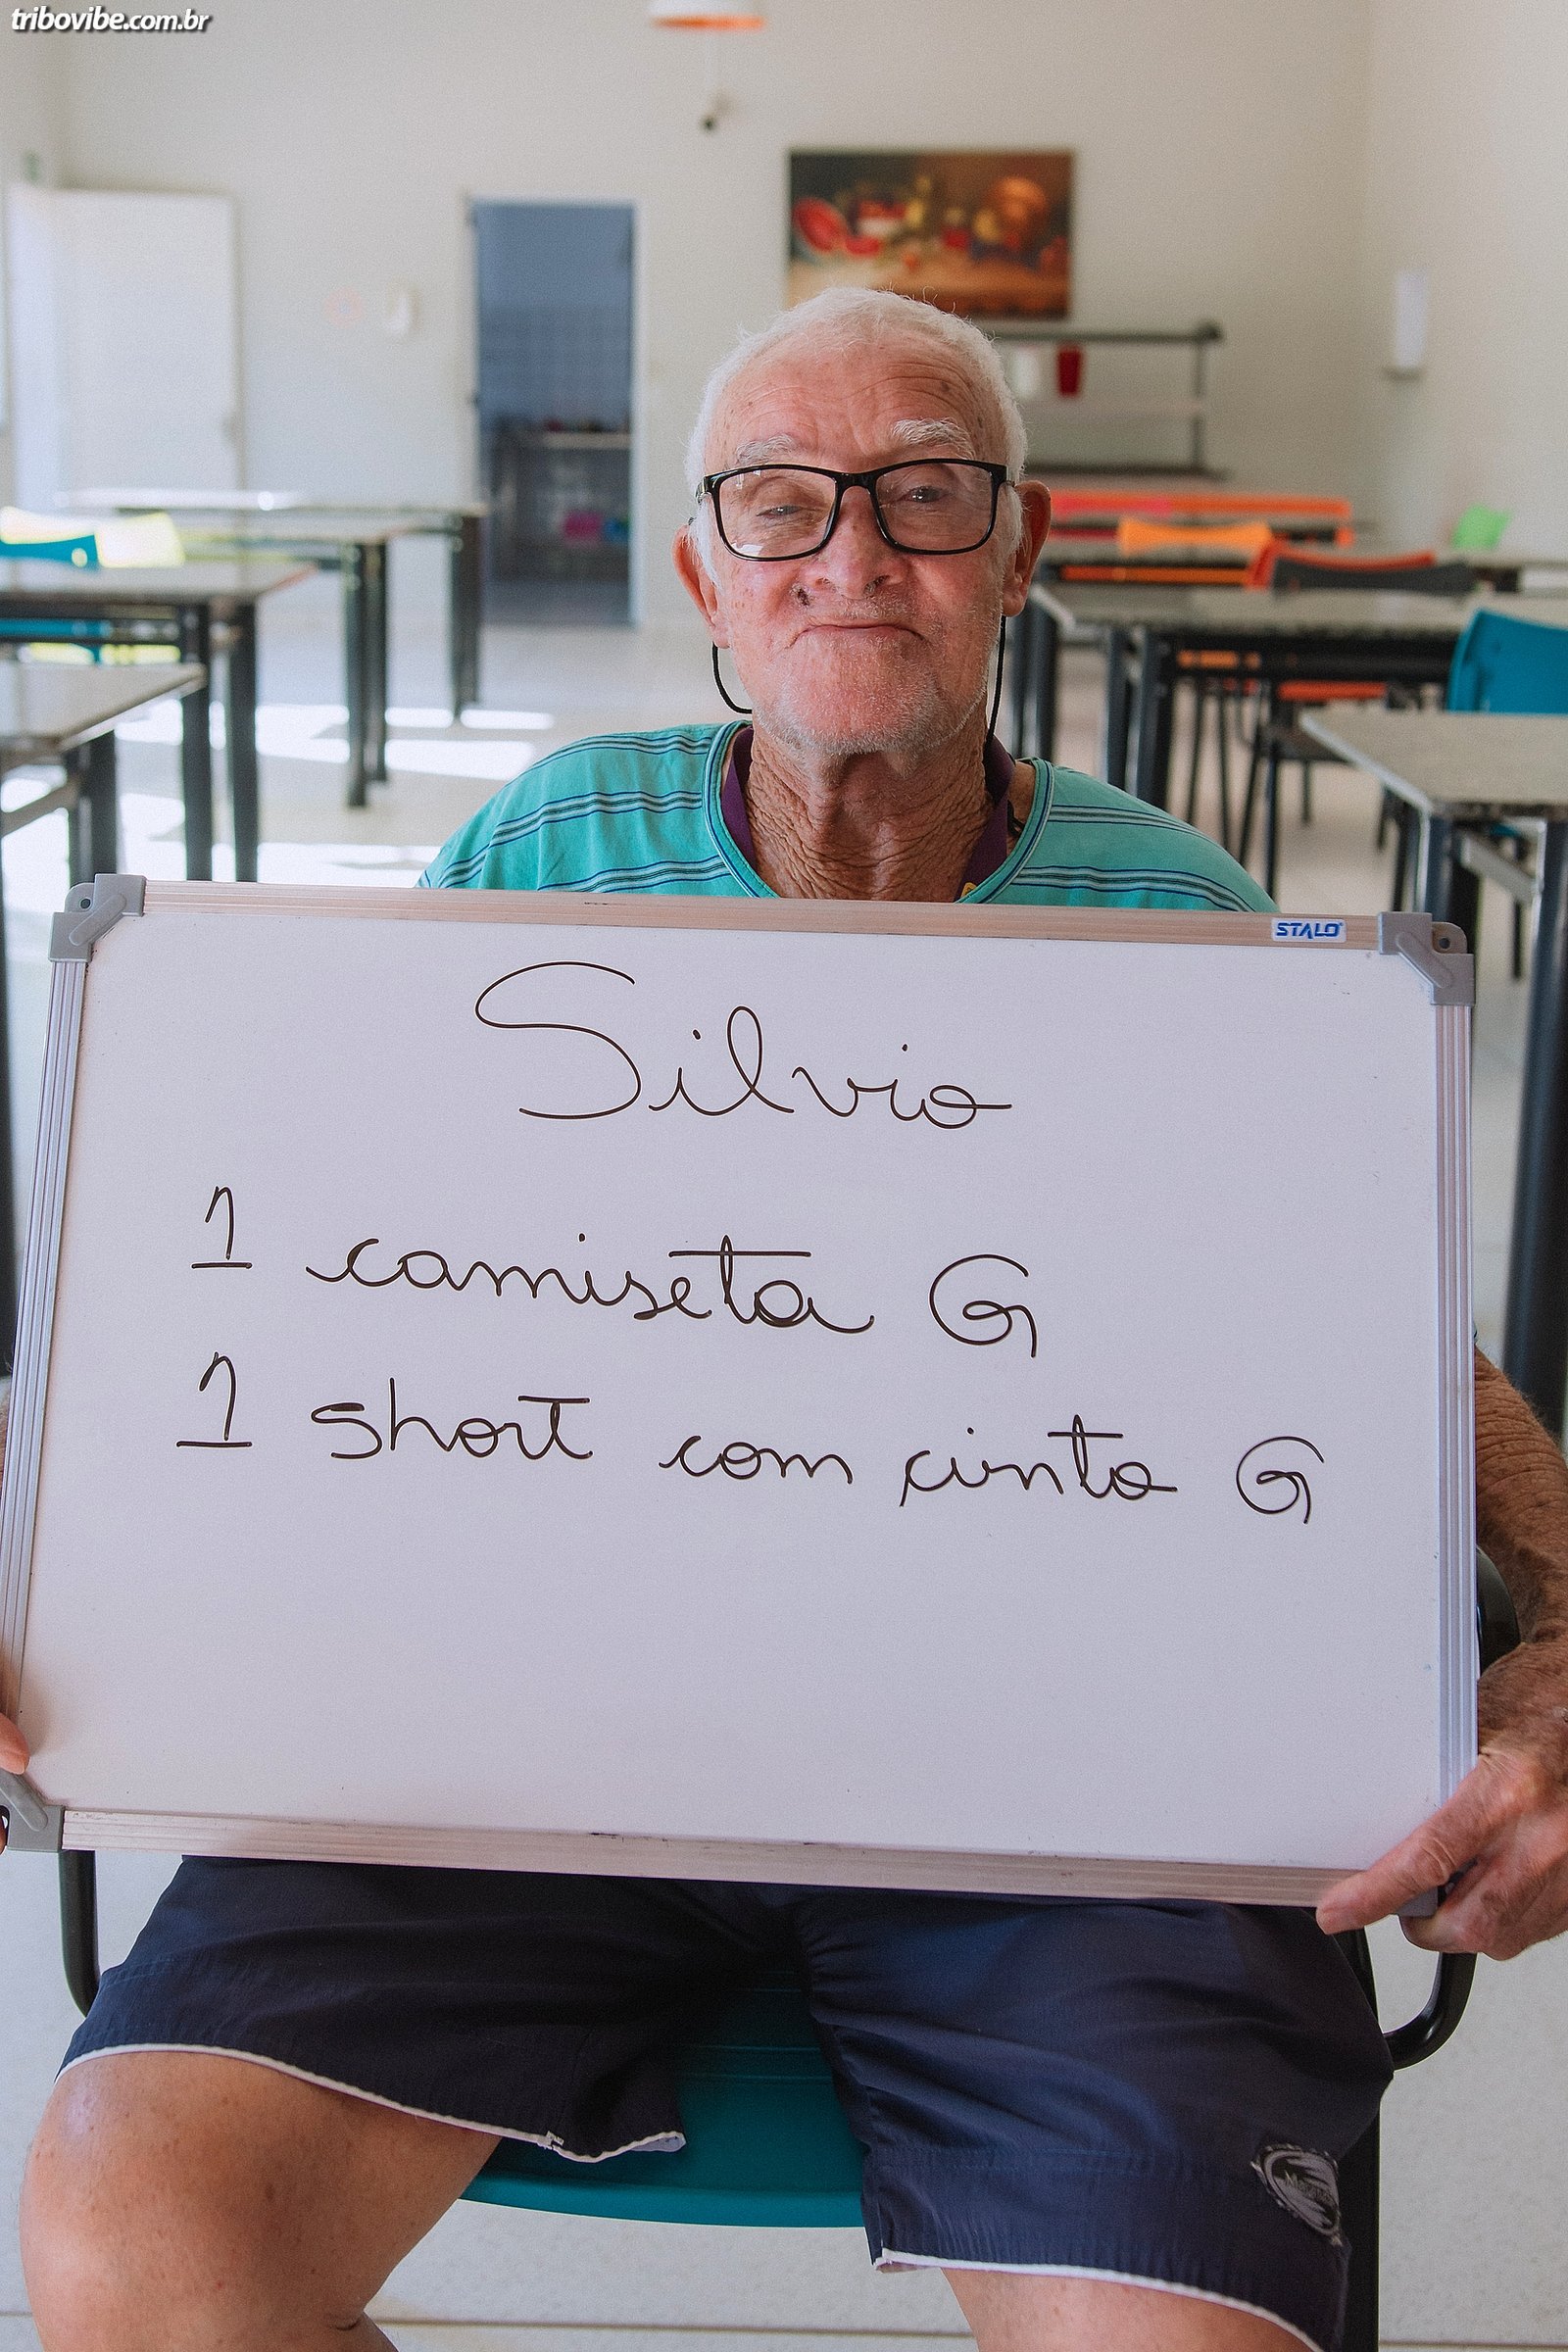 tribovibe.com.br
STALO
Silvio
1 camiseta G
1 short com cinto G